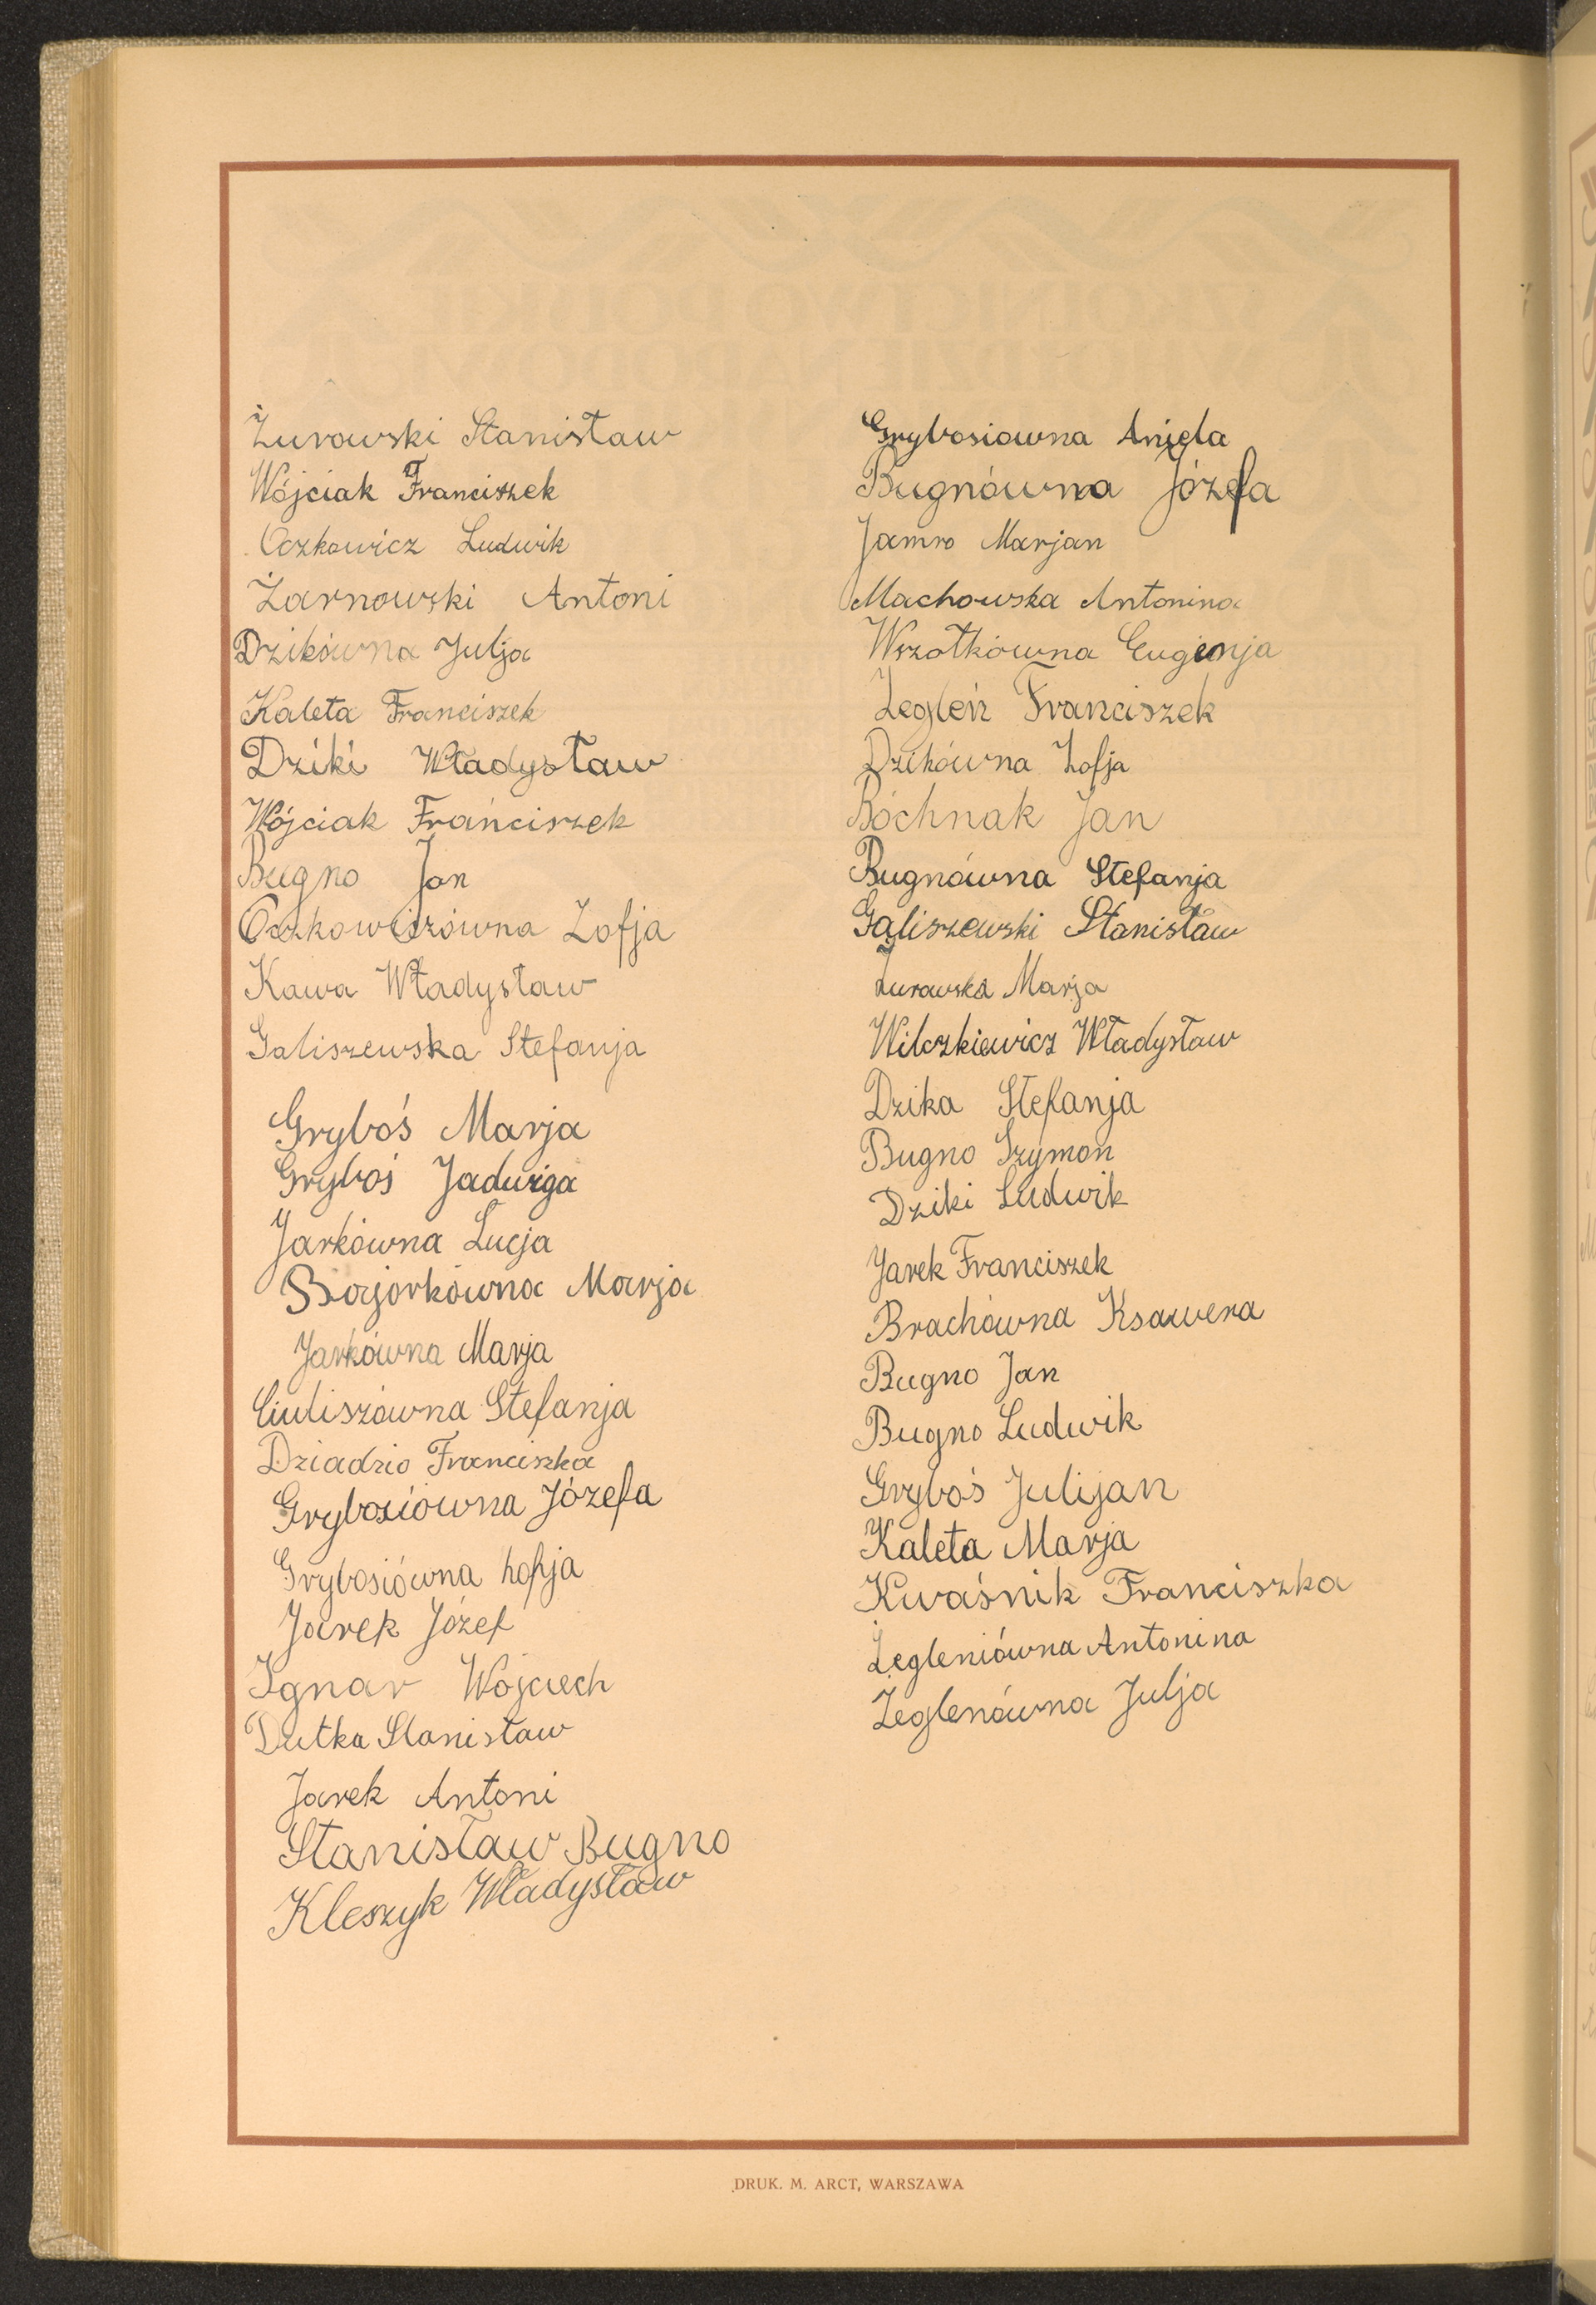 Żurowski Stanisław
Wójciak Franciszek
Oczkowicz Ludwik
Żarnowski Antoni
Dzikówna Julja
Kaleta Franciszek
Dziki Władysław
Wójciak Franciszek
Bugno Jan
Oczkowiczówna Zofja
Kawa Władysław
Galiszewska Stefanja
Gryboś Marja
Gryboś Jadwiga
Jarkówna Łucja
Bajorkówna Marja
Jarkówna Marja
Ciuliszówna Stefanja
Dziadzio Franciszka
Grybosiówna Józefa
Grybosiówna Zofja
Jarek Józef
Ignar Wojciech
Dutka Stanisław
Jarek Antoni
Stanisław Bugno
Kleszyk Władysław
Grybosiowna Aniela
Bugnówna Józefa
Jamro Marjan
Machowska Antonina
Wszołkówna Eugienja
Żegleń Franciszek
Dzikówna Zofja
Bochnak Jan
Bugnówna Stefanja
Galiszewski Stanisław
Żurowska Marja
Wilczkiewicz Władysław
Dzika Stefanja
Bugno Szymon
Dziki Ludwik
Jarek Franciszek
Brachówna Ksawera
Bugno Jan
Bugno Ludwik
Gryboś Julijan
Kaleta Marja
Kwaśnik Franciszka
Żegleniówna Antonina
Żeglenówna Julja
DRUK. M. ARCT, WARSZAWA